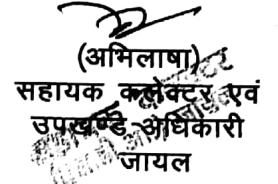 (अभिलाषा)
सहायक कलेक्टर एवं
उपखण्ड अधिकारी
जायल